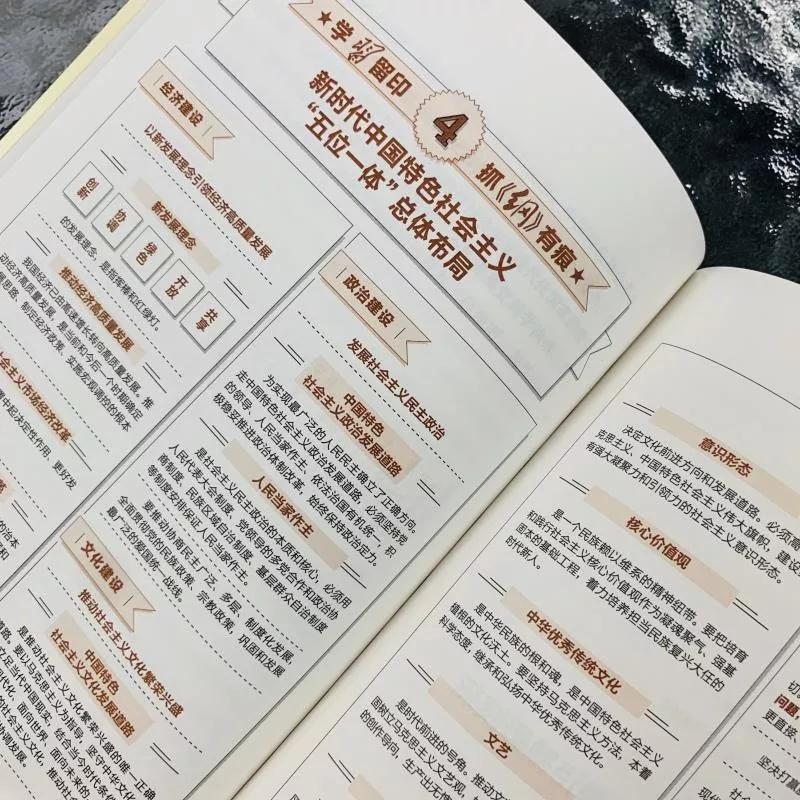 学习留印
4
抓《纲》有痕
新时代中国特色社会主义
“五位一体”总体布局
经济建设
以新发展理念引领经济高质量发展
新发展理念
创新
协调
绿色
开放
共享
的发展理念,是指挥棒和红绿灯。
推动经济高质量发展
我国经济已由高速增长转向高质量发展。推
动经济高质量发展,是当前和今后一个时期确定
展思路、制定经济政策、实施宏观调控的根本
社会主义市场经济改革
置中起决定性作用,更好发
政治建设
发展社会主义民主政治
中国特色
社会主义政治发展道路
为实现最广泛的人民民主确立了正确方向。
走中国特色社会主义政治发展道路,必须坚持党
的领导、人民当家作主、依法治国有机统一,积
极稳妥推进政治体制改革,始终保持政治定力。
人民当家作主
是社会主义民主政治的本质和核心,必须用
人民代表大会制度、党领导的多党合作和政治协
商制度、民族区域自治制度、基层群众自治制度
等制度安排保证人民当家作主。
要推动协商民主广泛、多层、制度化发展,
全面贯彻党的民族政策、宗教政策,巩固和发展
最广泛的爱国统一战线。
文化建设
推动社会主义文化繁荣兴盛
中国特色
社会主义文化发展道路
是推动社会主义文化繁荣兴盛的唯一正确
道路。要以马克思主义为指导,坚守中华文化
立足当代中国现实,结合当今时代条件
代化、面向世界、面向未来的
意识形态
决定文化前进方向和发展道路。必须高
克思主义、中国特色社会主义伟大旗帜,建设
有强大凝聚力和引领力的社会主义意识形态。
核心价值观
是一个民族赖以维系的精神纽带。要把培育
和践行社会主义核心价值观作为凝魂聚气、强基
固本的基础工程,着力培养担当民族复兴大任的
时代新人。
中华优秀传统文化
是中华民族的根和魂,是中国特色社会主义
植根的文化沃土。要坚持马克思主义方法,本着
科学态度,继承和弘扬中华优秀传统文化。
文艺
是时代前进的号角。推动文
固树立马克思主义文艺观,
的创作导向,生产出无愧
问题,
更直接、
坚决打赢